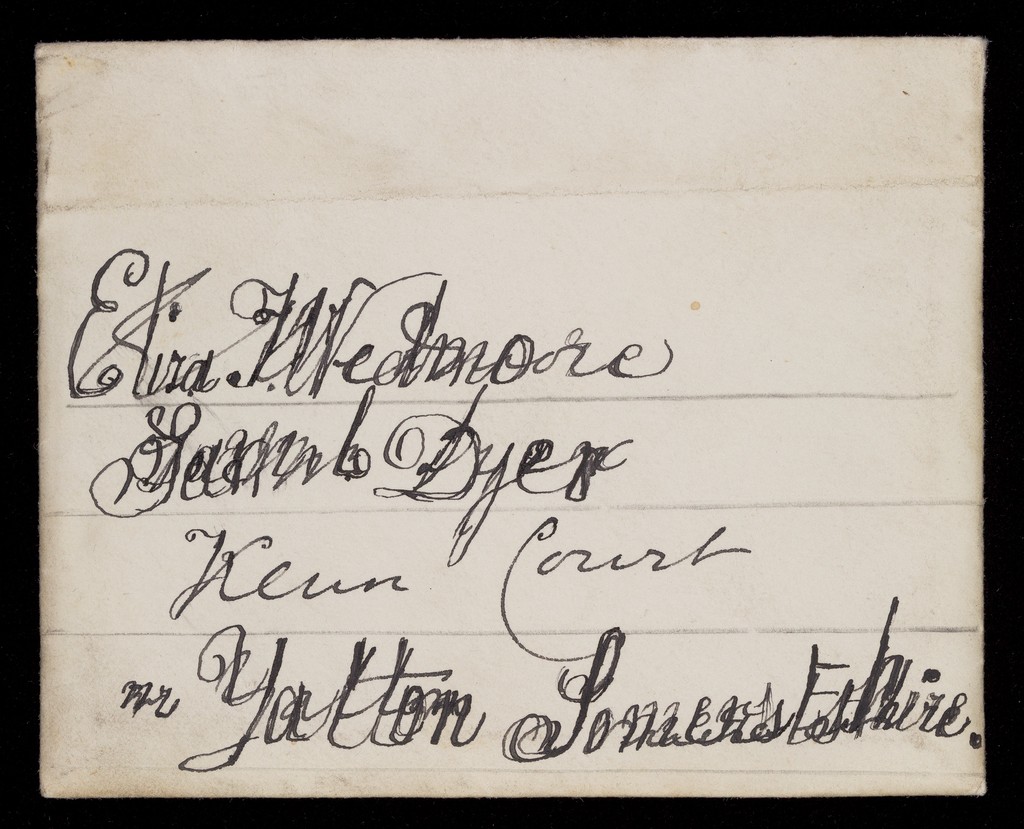 Eliza. F. Wedmore
Saml. Dyer
Kenn Court
nr Yatton Somersetshire.